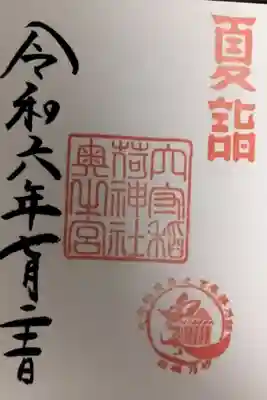 夏詣
穴守稲
荷神社
奥之宮
令和六年七月二十一日